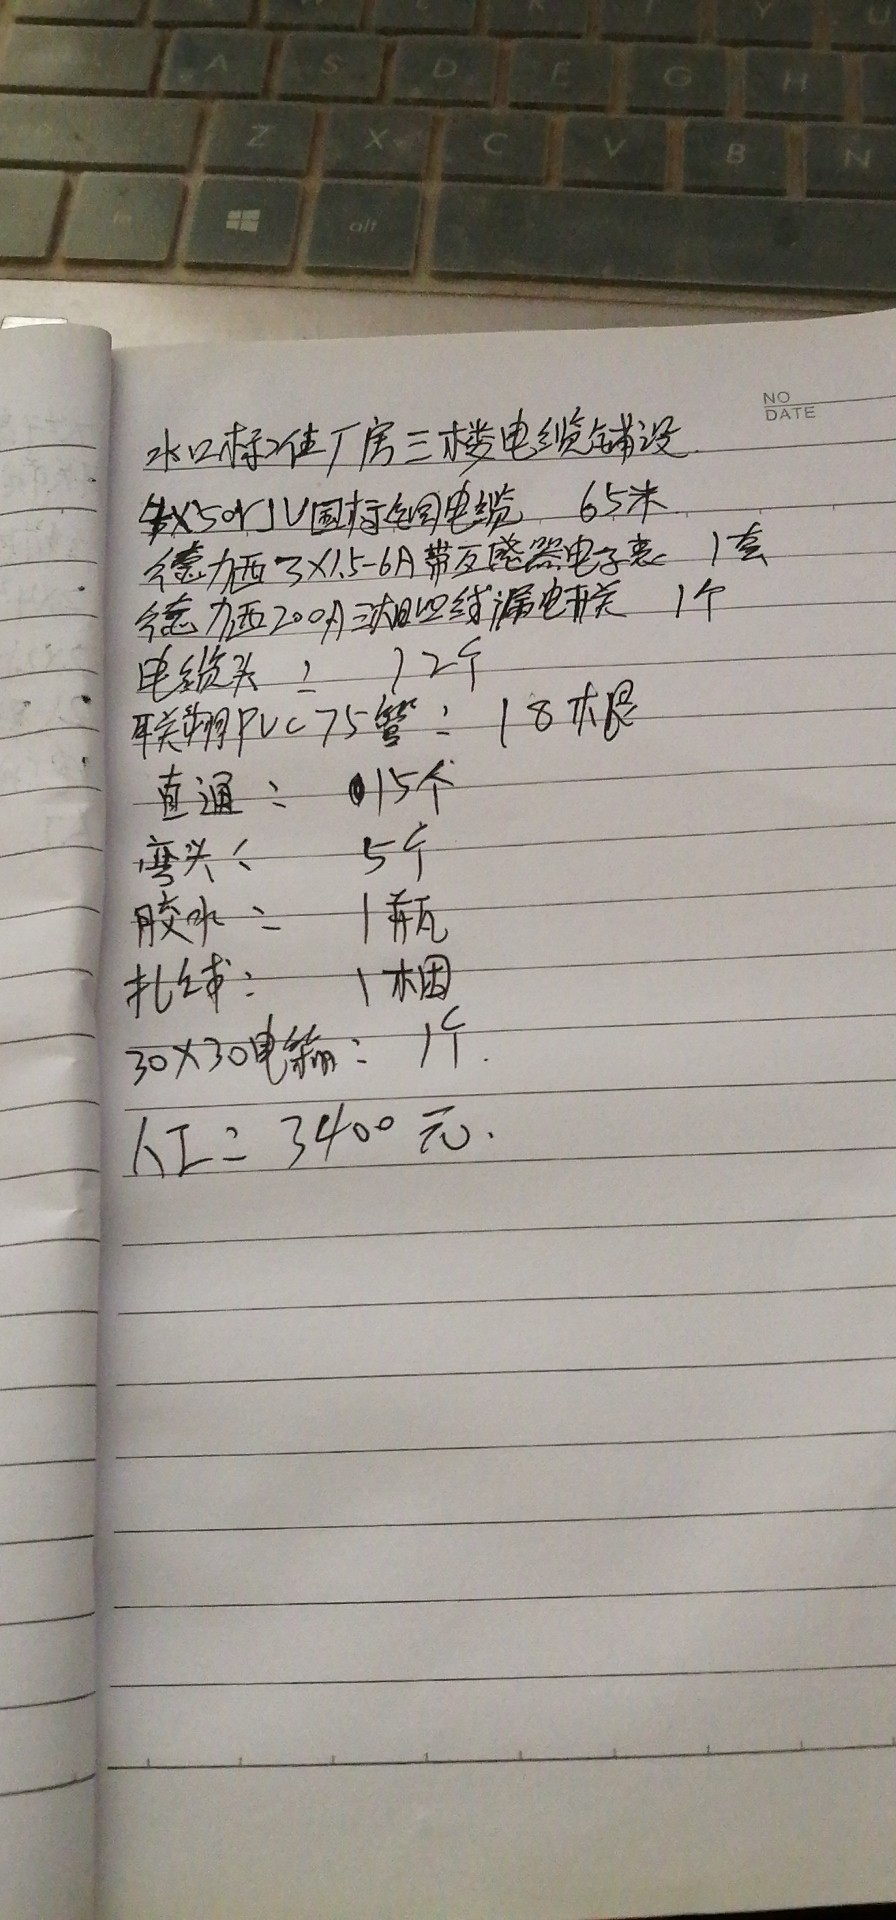 A S D F G H
Z X C V B N
fn alt
NO
DATE
水口标准厂房三楼电缆铺设
X50YJV国标全铜电缆 65米
德力西3X1.5-6A带互感器电子表 1套
德力西200A三相四线漏电开关 1个
电缆头: 12个
联塑PVC75管: 18根
直通: 15个
弯头: 5个
胶水: 1瓶
扎线: 1捆
30X30电箱: 1个.
人工: 3400元.